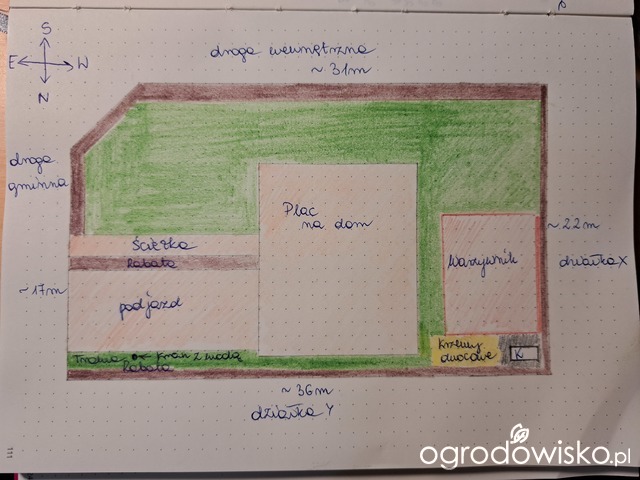 S
E W
N
droga wewnętrzna
~ 31m
droga
gminna
Plac
na dom
Ścieżka
Rabata
~ 22m
działka X
Warzywnik
~ 17m
podjazd
Krzewy
owocowe
K
Trawa kran z wodą
Rabata
~ 36m
działka Y
111
ogrodowisko.pl